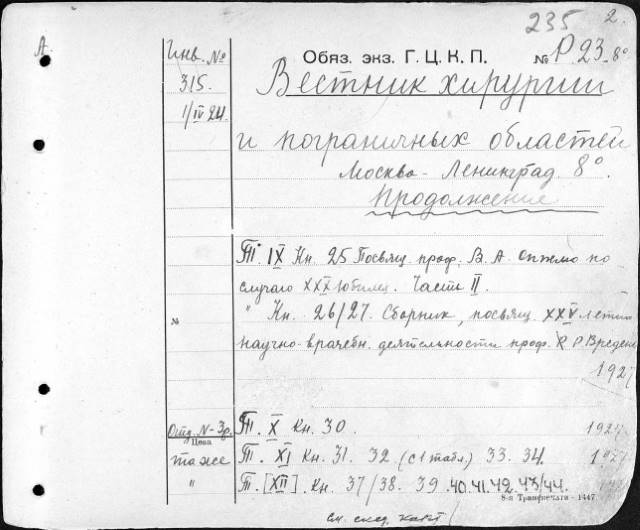 235 2.
А.
Инв. №
315.
1/IV 24.
Обяз. экз. Г. Ц. К. П. № Р.23-8°
Вестник хирургии
и пограничных областей
Москва - Ленинград 8°.
Продолжение
Т. IX Кн. 25 Посвящ. проф. В. А. Оппелю по
случаю XXX юбилея. Часть II.
" Кн. 26/27. Сборник, посвящ. XXV летию
№
научно-врачебн. деятельности проф. Р. Р. Вредена
1927
Т. X Кн. 30.
Отд. N-3р.
Цена
то же Т. XI Кн. 31. 32 (с 1 табл.) 33. 34.
" Т. [XII]. Кн. 37/38. 39. 40. 41. 42. 43/44.
8-я Транфсечати - 1447
См. след. карт